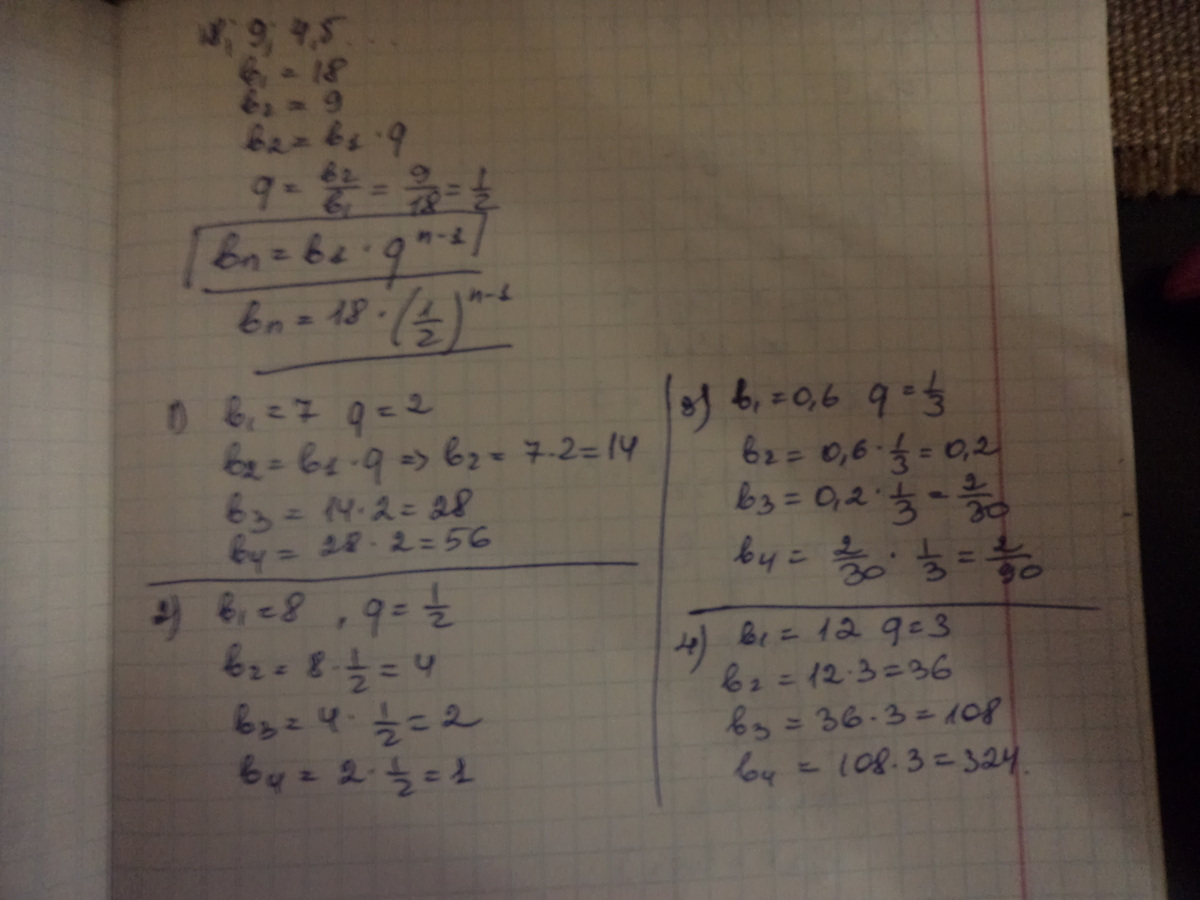 18; 9; 4,5...
b₁ = 18
b₂ = 9
b₂ = b₁ · q
q = b₂/b₁ = 9/18 = 1/2
bₙ = b₁ · qⁿ⁻¹
bₙ = 18 · (1/2)ⁿ⁻¹
1) b₁ = 7 q = 2
b₂ = b₁ · q => b₂ = 7 · 2 = 14
b₃ = 14 · 2 = 28
b₄ = 28 · 2 = 56
2) b₁ = 8 , q = 1/2
b₂ = 8 · 1/2 = 4
b₃ = 4 · 1/2 = 2
b₄ = 2 · 1/2 = 1
3) b₁ = 0,6 q = 1/3
b₂ = 0,6 · 1/3 = 0,2
b₃ = 0,2 · 1/3 = 2/30
b₄ = 2/30 · 1/3 = 2/90
4) b₁ = 12 q = 3
b₂ = 12 · 3 = 36
b₃ = 36 · 3 = 108
b₄ = 108 · 3 = 324.